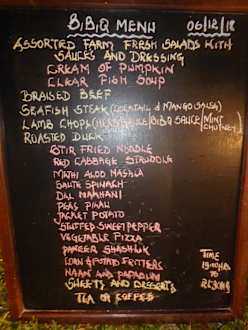 B.B.Q MENU 06/12/18
ASSORTED FARM FRESH SALADS WITH
SAUCES AND DRESSING
CREAM OF PUMPKIN
CLEAR FISH SOUP
BRAISED BEEF
SEAFISH STEAK (COCKTAIL & MANGO SALSA)
LAMB CHOPS (HERB SAUCE/BBQ SAUCE/MINT
CHUTNEY)
ROASTED DUCK
STIR FRIED NOODLE
RED CABBAGE STRUDDLE
METHI ALOO MASALA
SAUTE SPINACH
DAL MAKHANI
PEAS PILAU
JACKET POTATO
STUFFED SWEET PEPPER
VEGETABLE PIZZA
PANEER SHASHLIK
CORN & POTATO FRITTERS
NAAN AND PAPADUM
SWEETS AND DESSERTS
TEA OR COFFEE
TIME
TO